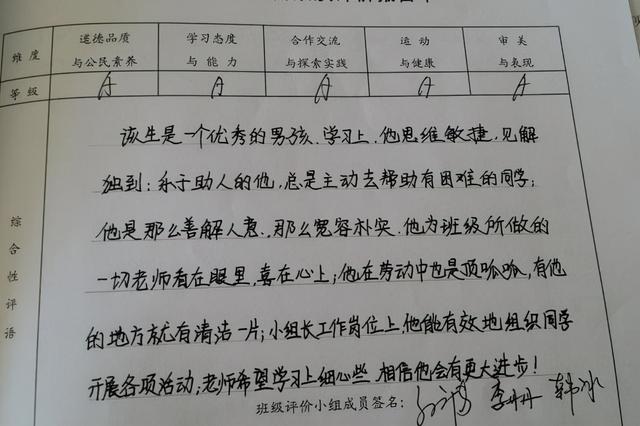 维度 道德品质与公民素养 学习态度与能力 合作交流与探索实践 运动与健康 审美与表现
等级 A A A A A
综合性评语
该生是一个优秀的男孩、学习上,他思维敏捷,见解
独到;乐于助人的他,总是主动去帮助有困难的同学;
他是那么善解人意.,那么宽容朴实.他为班级所做的
一切老师看在眼里,喜在心上;他在劳动中也是顶呱呱,有他
的地方就有清洁一片;小组长工作岗位上,他能有效地组织同学
开展各项活动;老师希望学习上细心些,相信他会有更大进步!
班级评价小组成员签名: 李丹丹 韩冰